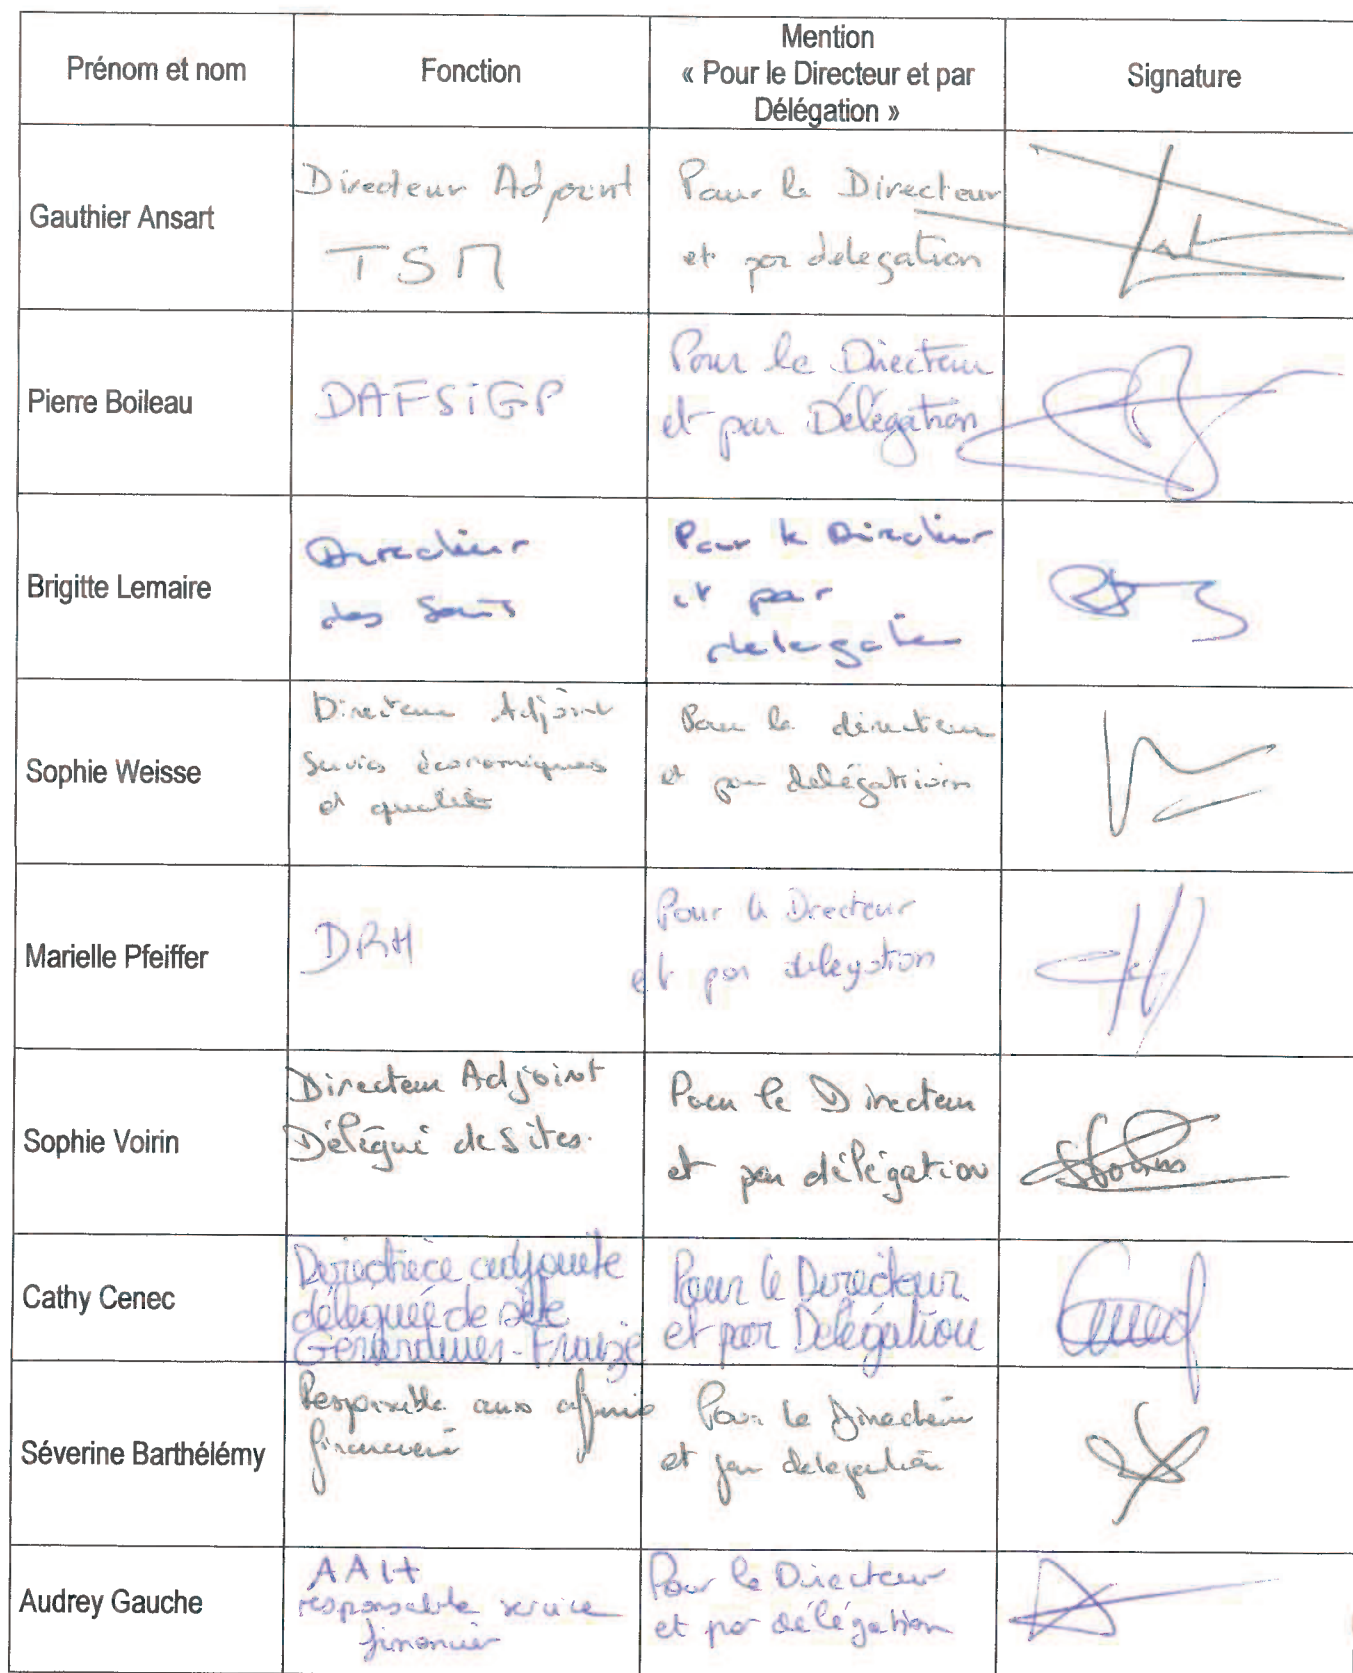 Prénom et nom
Fonction
Mention
« Pour le Directeur et par
Délégation »
Signature
Gauthier Ansart
Directeur Adjoint
TSM
Pour le Directeur
et par delegation
Pierre Boileau
DAFSiGP
Pour le Directeur
et par Délégation
Brigitte Lemaire
Directeur
des Soins
Pour le Directeur
et par
delegation
Sophie Weisse
Directeur Adjoint
Services économiques
et qualité
Pour le directeur
et par délégation
Marielle Pfeiffer
DRH
Pour le Directeur
et par delegation
Sophie Voirin
Directeur Adjoint
Délégué de sites.
Pour le Directeur
et par délégation
Cathy Cenec
Directrice adjointe
déléguée de site
Gerardmer-Fraize
Pour le Directeur
et par Delegation
Séverine Barthélémy
Responsable aux affaires
financières
Pour le Directeur
et par delegation
Audrey Gauche
AAH
responsable service
financier
Pour le Directeur
et par délégation